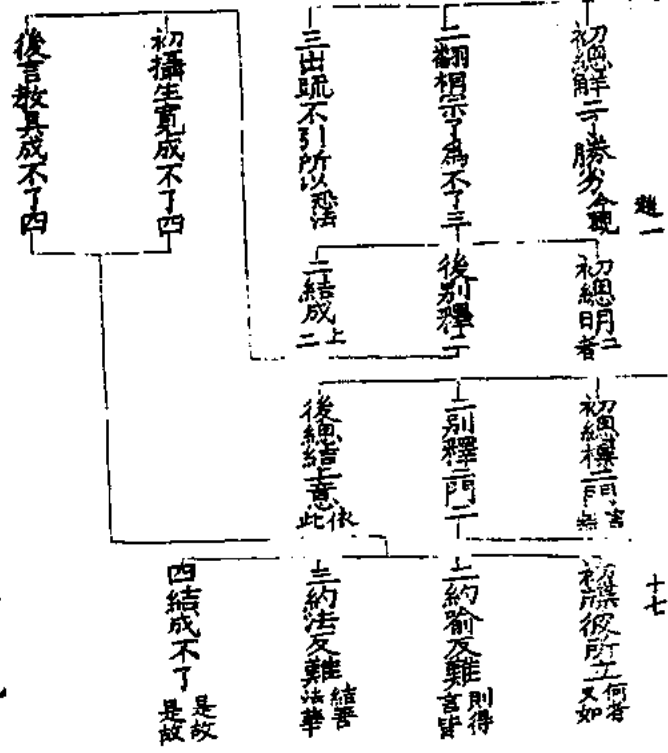 初總解二了勝劣 今觀
二翻相宗了為不了三
三出疏不引所以 恐法
初攝生寬成不了四
後言教具成不了四
初總明二 初總日者
後別釋二
二結成二 上
初總標二門 言
二別釋二門二
後總結上意 依此
初牒彼所立 何者 又如
二約喻反難 則得 言皆
三約法反難 結善 法華
四結成不了 是故 是故
十七